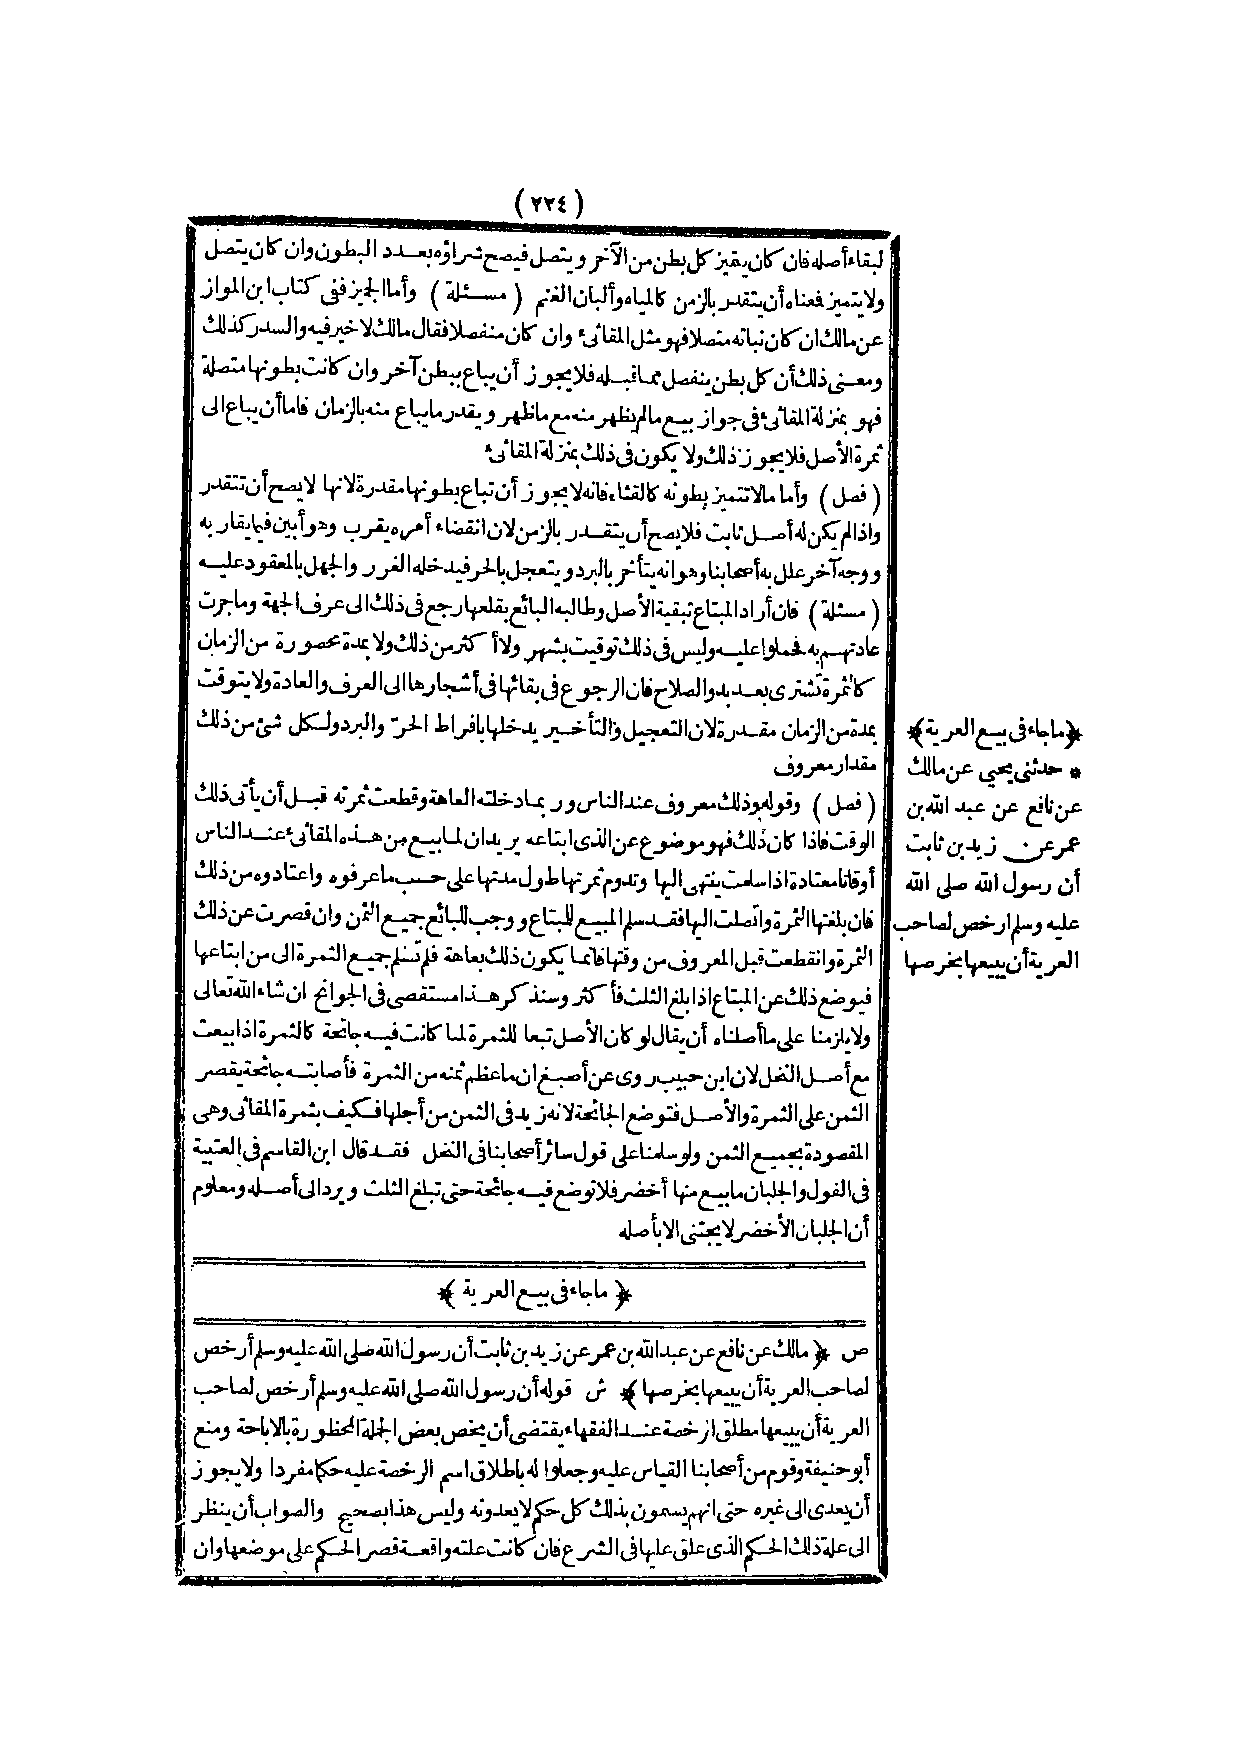 ( ٢٢٤ )
لبقاء أصله فان كان يتميز كل بطن من الآخر و يتصل فيصح شراؤه بعدد البطون وان كان يتصل
ولا يتميز فعناه أن يتقدر بالزمن كالمياه وألبان الغنم ( مسئلة ) وأما الجميز ففى كتاب ابن المواز
عن مالك ان كان نباته متصلا فهو مثل المقاثئ وان كان منفصلا فقال مالك لا خير فيه والسدر كذلك
ومعنى ذلك أن كل بطن ينفصل مما قبله فلا يجوز أن يباع ببطن آخر وان كانت بطونها متصلة
فهو بمنزلة المقاثئ فى جواز بيع مالم يظهر منه مع ماظهر ويقدر ما يباع منه بالزمان فاما أن يباع الى
ثمرة الأصل فلا يجوز ذلك ولا يكون فى ذلك بمنزلة المقاثئ
( فصل ) وأما مالا تتميز بطونه كالقثاء فانه لا يجوز أن تباع بطونها مقدرة لانها لا يصح أن تتقدر
واذا لم يكن له أصل ثابت فلا يصح أن يتقدر بالزمن لان انقضاء أمره يقرب وهو أبين فيما يقار به
ووجه آخر علل به أصحابنا وهو انه يتأخر بالبرد و يتعجل بالحر فيدخله الغرر والجهل بالمعقود عليه
( مسئلة ) فان أراد المبتاع تبقية الأصل وطالبه البائع بقلعها رجع فى ذلك الى عرف الجهة وماجرت
عادتهم به فحملوا عليه وليس فى ذلك توقيت بشهر ولا أكثر من ذلك ولا بمدة محصورة من الزمان
كالثمرة تشترى بعد بدو الصلاح فان الرجوع فى بقائها فى أشجارها الى العرف والعادة ولا يتوقت
بمدة من الزمان مقدرة لان التعجيل والتأخير يدخلها بافراط الحرّ والبرد ولكل شئ من ذلك
مقدار معروف
( فصل ) وقوله وذلك معروف عند الناس وربما دخلته العاهة وقطعت ثمرته قبل أن يأتى ذلك
الوقت فاذا كان ذلك فهو موضوع عن الذى ابتاعه يريد ان لما بيع من هذه المقاثئ عند الناس
أوقاتا معتادة اذا سلمت ينتهى اليها وتدوم ثمرتها طول مدتها على حسب ما عرفوه واعتادوه من ذلك
فان بلغتها الثمرة واتصلت اليها فقد سلم المبيع للمبتاع ووجب للبائع جميع الثمن وان قصرت عن ذلك
الثمرة وانقطعت قبل المعروف من وقتها فانما يكون ذلك بعاهة فلم تسلم جميع الثمرة الى من ابتاعها
فيوضع ذلك عن المبتاع اذا بلغ الثلث فأكثر وسنذكر هذا مستقصى فى الجوائح ان شاء الله تعالى
ولا يلزمنا على ما أصلناه أن يقال لو كان الأصل تبعا للثمرة لما كانت فيه جائحة كالثمرة اذا بيعت
مع أصل النخل لان ابن حبيب روى عن أصبغ ان ما عظم ثمنه من الثمرة فأصابته جائحة يقصر
الثمن على الثمرة والأصل فتوضع الجائحة لانه زيد فى الثمن من أجلها فكيف بثمرة المقاثى وهى
المقصودة بجميع الثمن ولو سلمنا على قول سائر أصحابنا فى النخل فقد قال ابن القاسم فى العتبية
فى الفول والجلبان ما بيع منها أخضر فلا توضع فيه جائحة حتى تبلغ الثلث ويرد الى أصله ومعلوم
أن الجلبان الأخضر لا يجتنى الا بأصله
﴿ ماجاء فى بيع العرية ﴾
ص ﴿ مالك عن نافع عن عبد الله بن عمر عن زيد بن ثابت أن رسول الله صلى الله عليه وسلم أرخص
لصاحب العرية أن يبيعها بخرصها ﴾ ش قوله أن رسول الله صلى الله عليه وسلم أرخص لصاحب
العرية أن يبيعها مطلق ارخصة عند الفقهاء يقتضى أن يخص بعض الجملة المحظورة بالاباحة ومنع
أبو حنيفة وقوم من أصحابنا القياس عليه وجعلوا له باطلاق اسم الرخصة عليه حكما مفردا ولا يجوز
أن يعدى الى غيره حتى انهم يسمون بذلك كل حكم لا يعدونه وليس هذا بصحيح والصواب أن ينظر
الى علة ذلك الحكم الذى علق عليها فى الشرع فان كانت علته واقعة قصر الحكم على موضعها وان
﴿ ماجاء فى بيع العرية ﴾
* حدثنى يحيى عن مالك
عن نافع عن عبد الله بن
عمر عن زيد بن ثابت
أن رسول الله صلى الله
عليه وسلم ارخص لصاحب
العرية أن يبيعها بخرصها